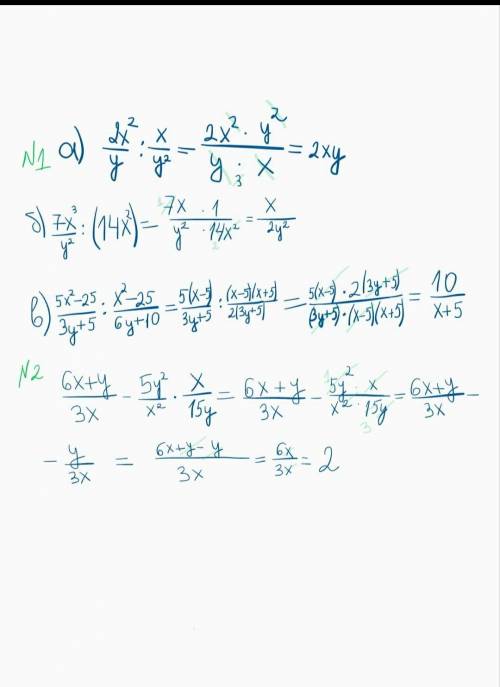 N1 а) 2x²/y : x/y² = 2x² · y²/y · x = 2xy
б) 7x³/y² : (14x²) = 7x³ · 1/y² · 14x² = x/2y²
в) 5x²-25/3y+5 : x²-25/6y+10 = 5(x-5)/3y+5 : (x-5)(x+5)/2(3y+5) = 5(x-5) · 2(3y+5)/(3y+5) · (x-5)(x+5) = 10/x+5
N2 6x+y/3x - 5y²/x² · x/15y = 6x+y/3x - 5y² · x/x² · 15y = 6x+y/3x -
- y/3x = 6x+y-y/3x = 6x/3x = 2